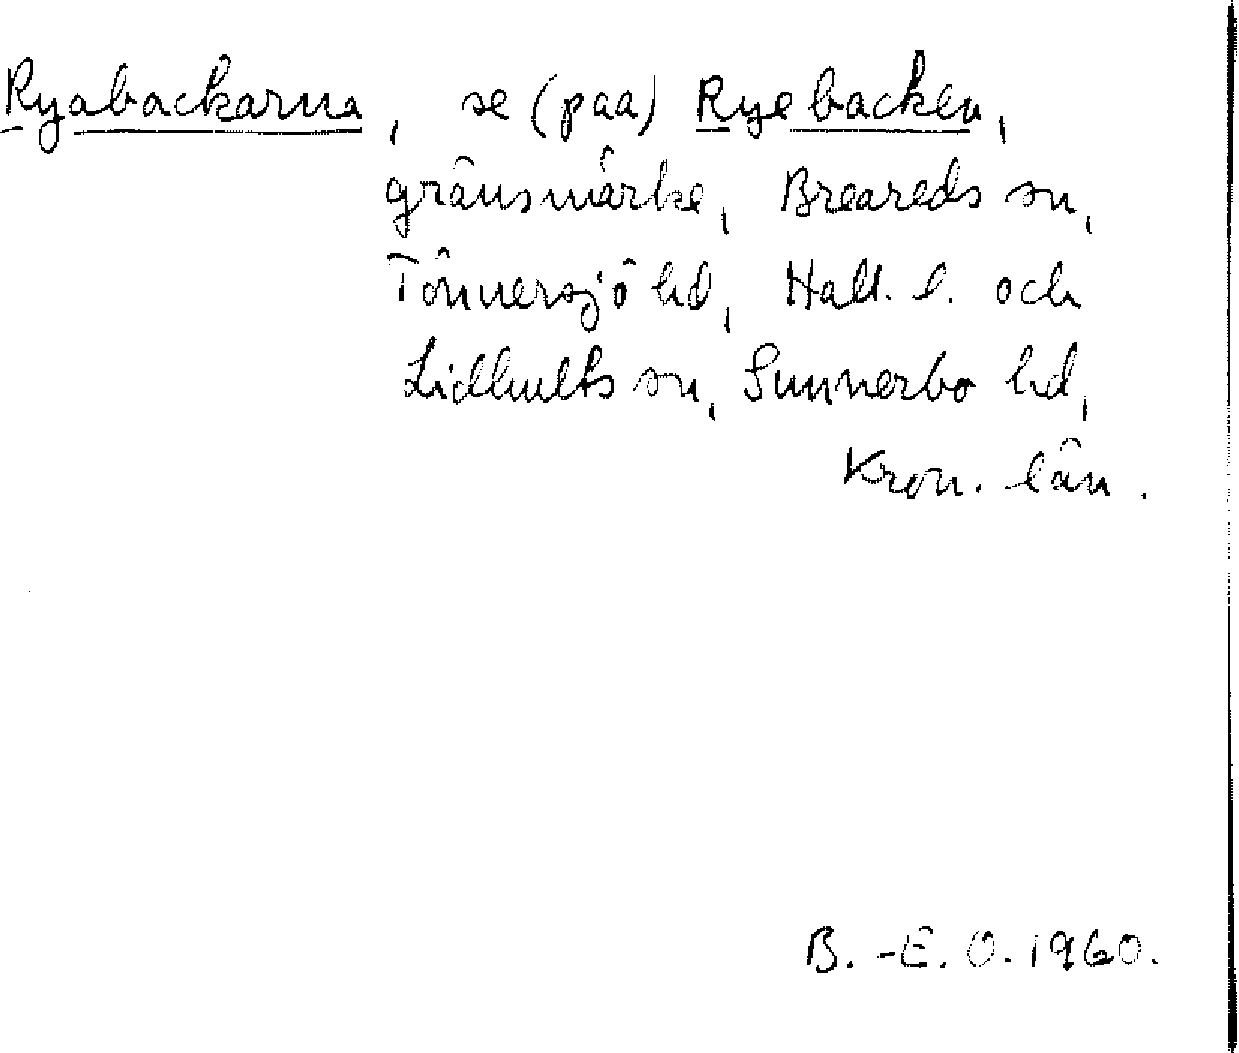 Ryabackarna, se (paa) Ryebacken,
gränsmärke, Breareds sn,
Tönnersjö hd, Hall. l. och
Lidhults sn, Sunnerbo hd,
Kron. län.
B.-E. O. 1960.